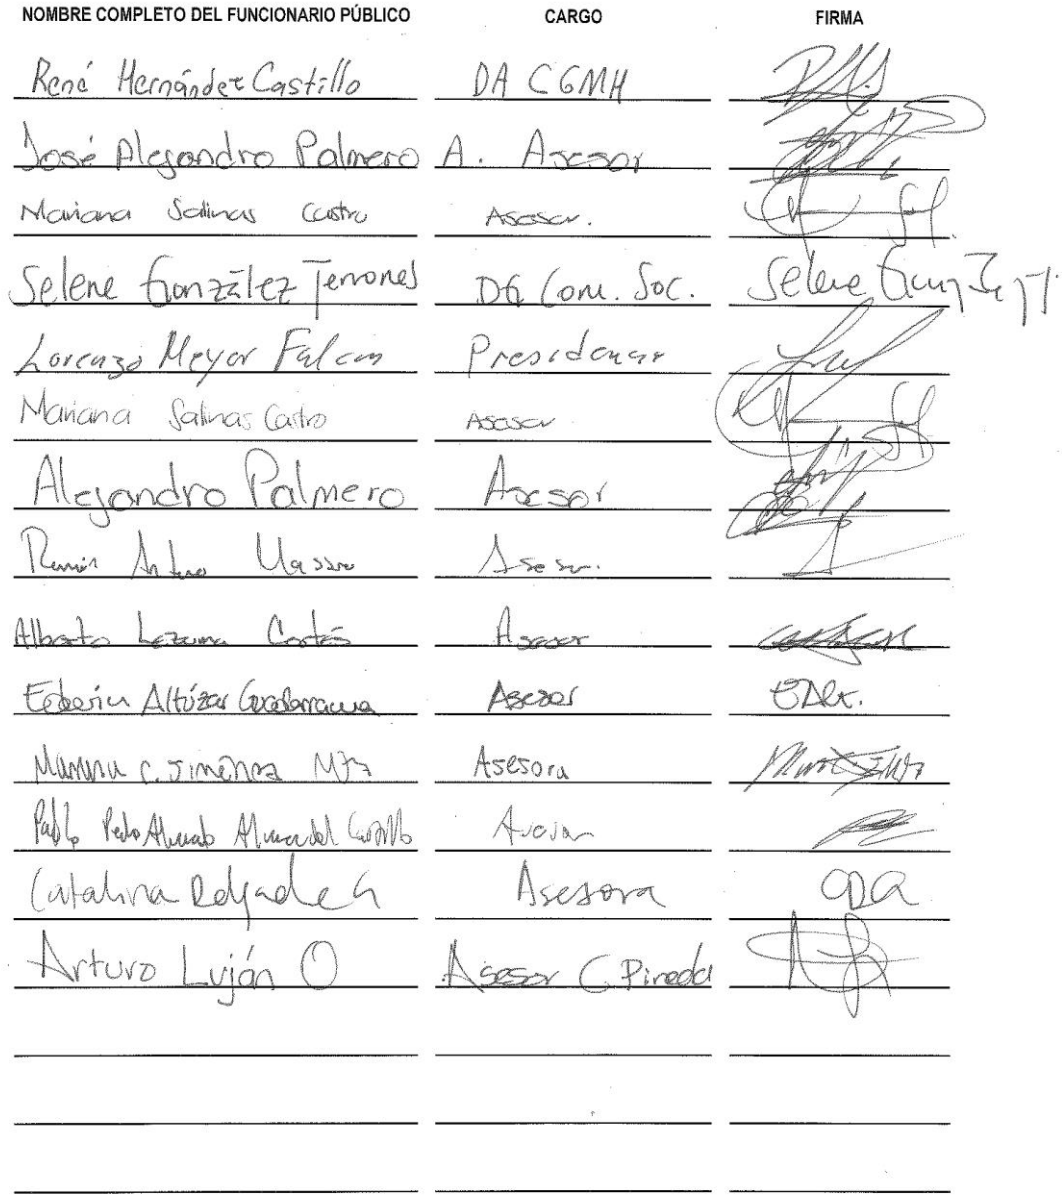 NOMBRE COMPLETO DEL FUNCIONARIO PÚBLICO CARGO FIRMA
René Hernández Castillo DA CGMH
José Alejandro Palmero A. Asesor
Mariana Salinas Castro Asesor.
Selene González Terrones DG Com. Soc. Selene
Lorenzo Meyer Falcón
Mariana Salinas Castro Asesor
Alejandro Palmero Asesor
Arturo Asesor.
Alberto Lezama Cortés Asesor
Altúzar Guadarrama Asesor
C. Jiménez Asesora
Pablo Pedro
Catalina Delgade G Asesora CDG
Arturo Luján O Asesor C Pineda